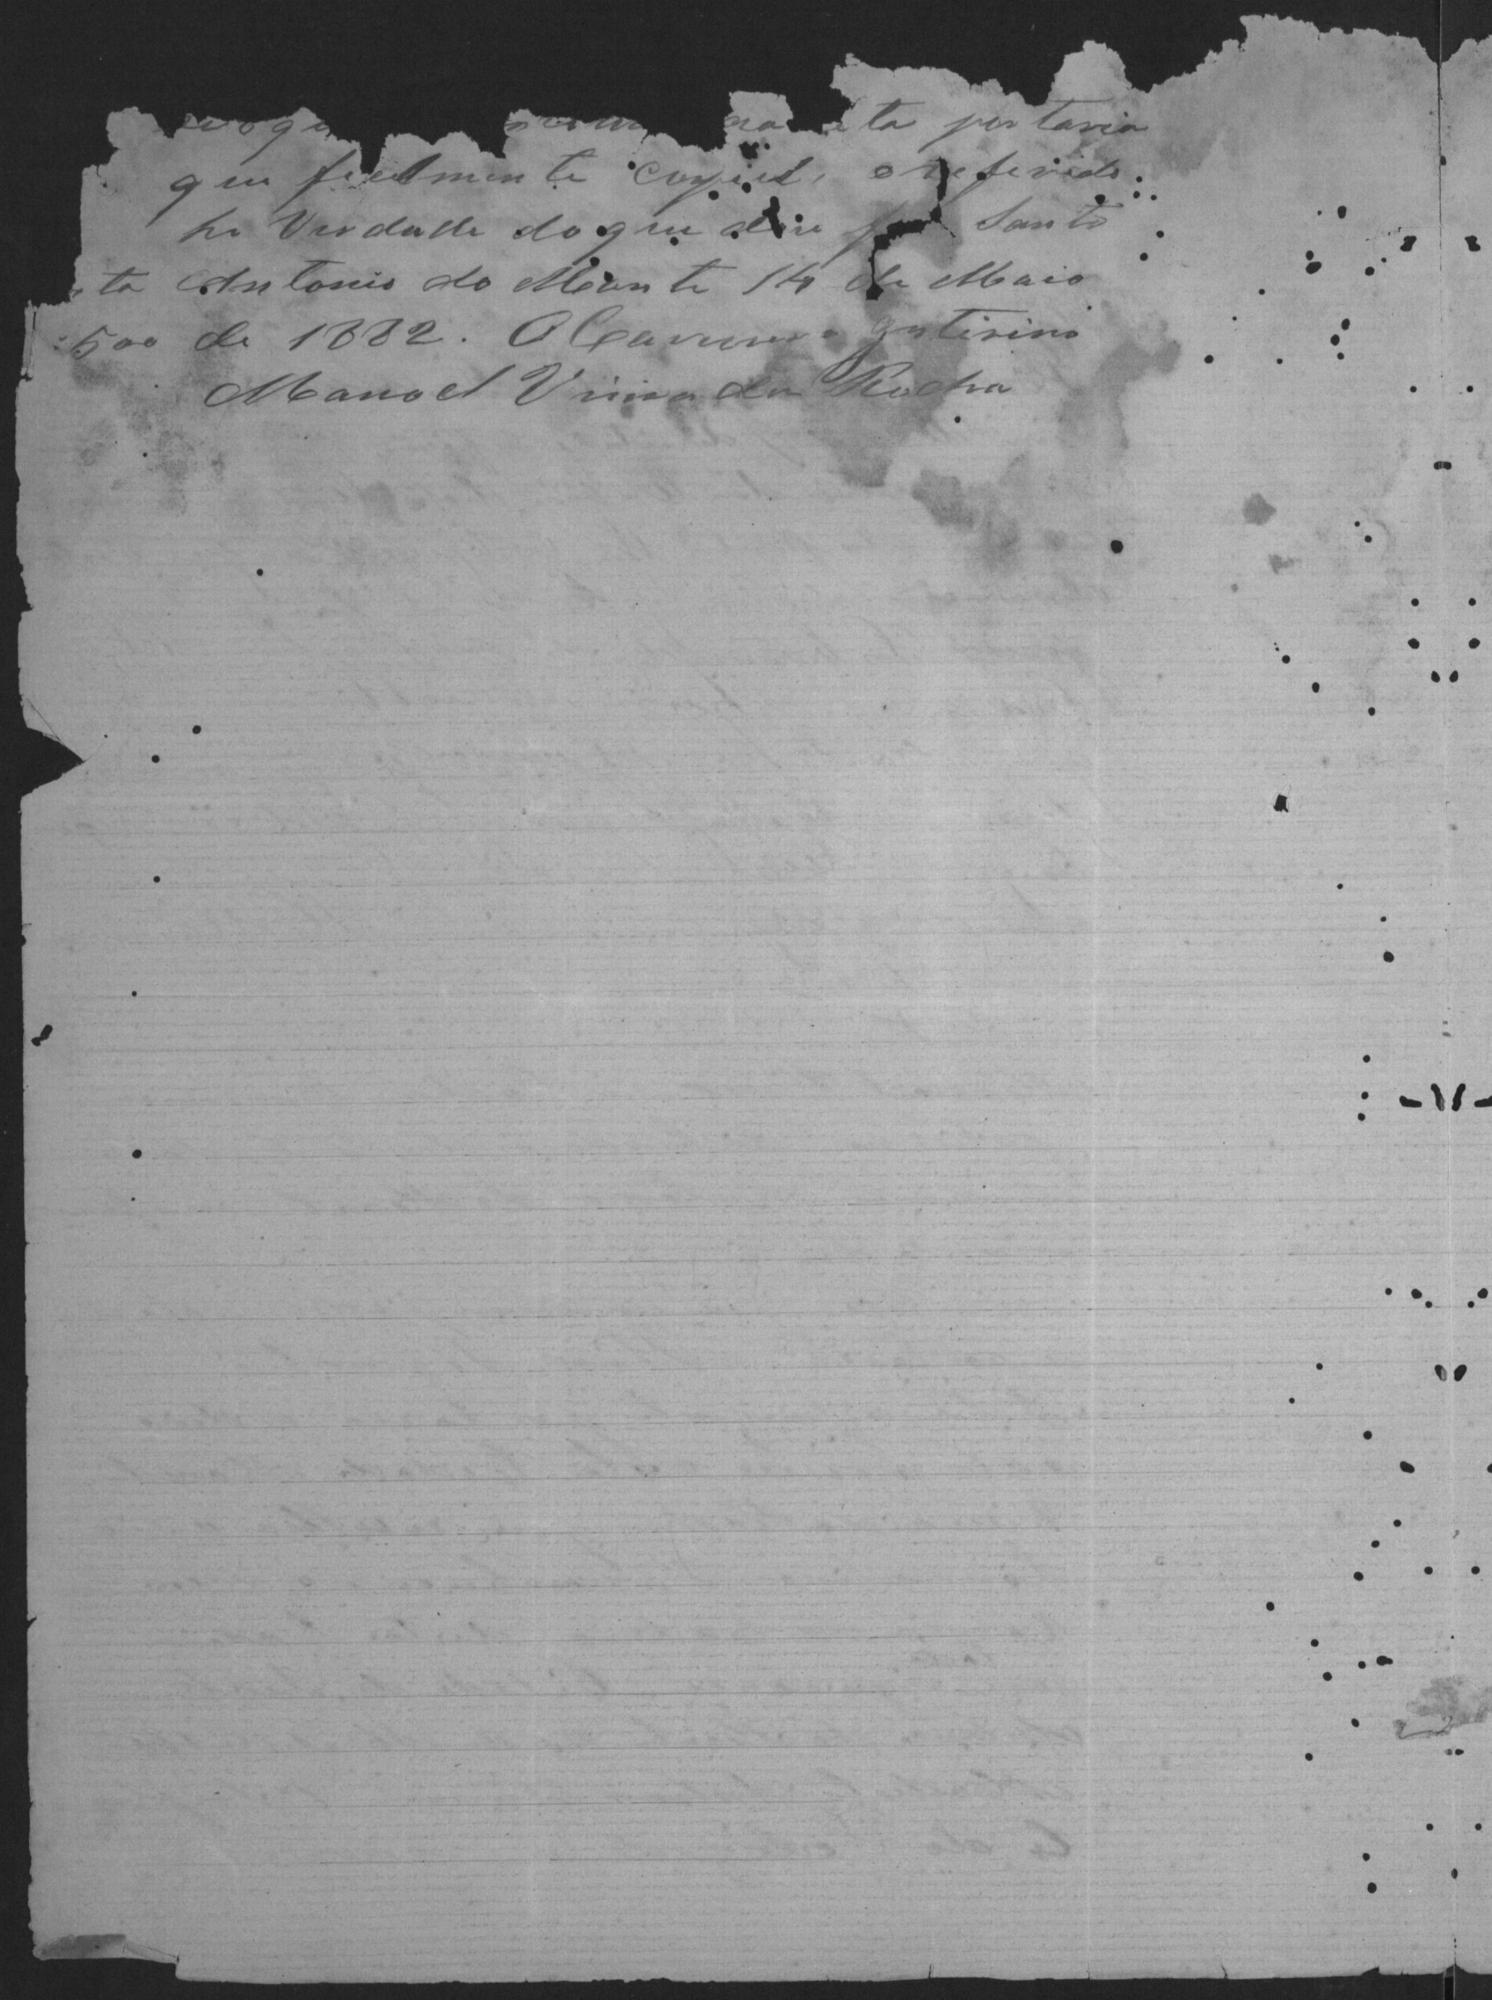 ta portaria
que fielmente copiei, o referido
he Verdade do que dou fé Santo
Antonio do Monte 14 de Maio
500 de 1882. O Escrivam interino
Manoel Vieira da Rocha